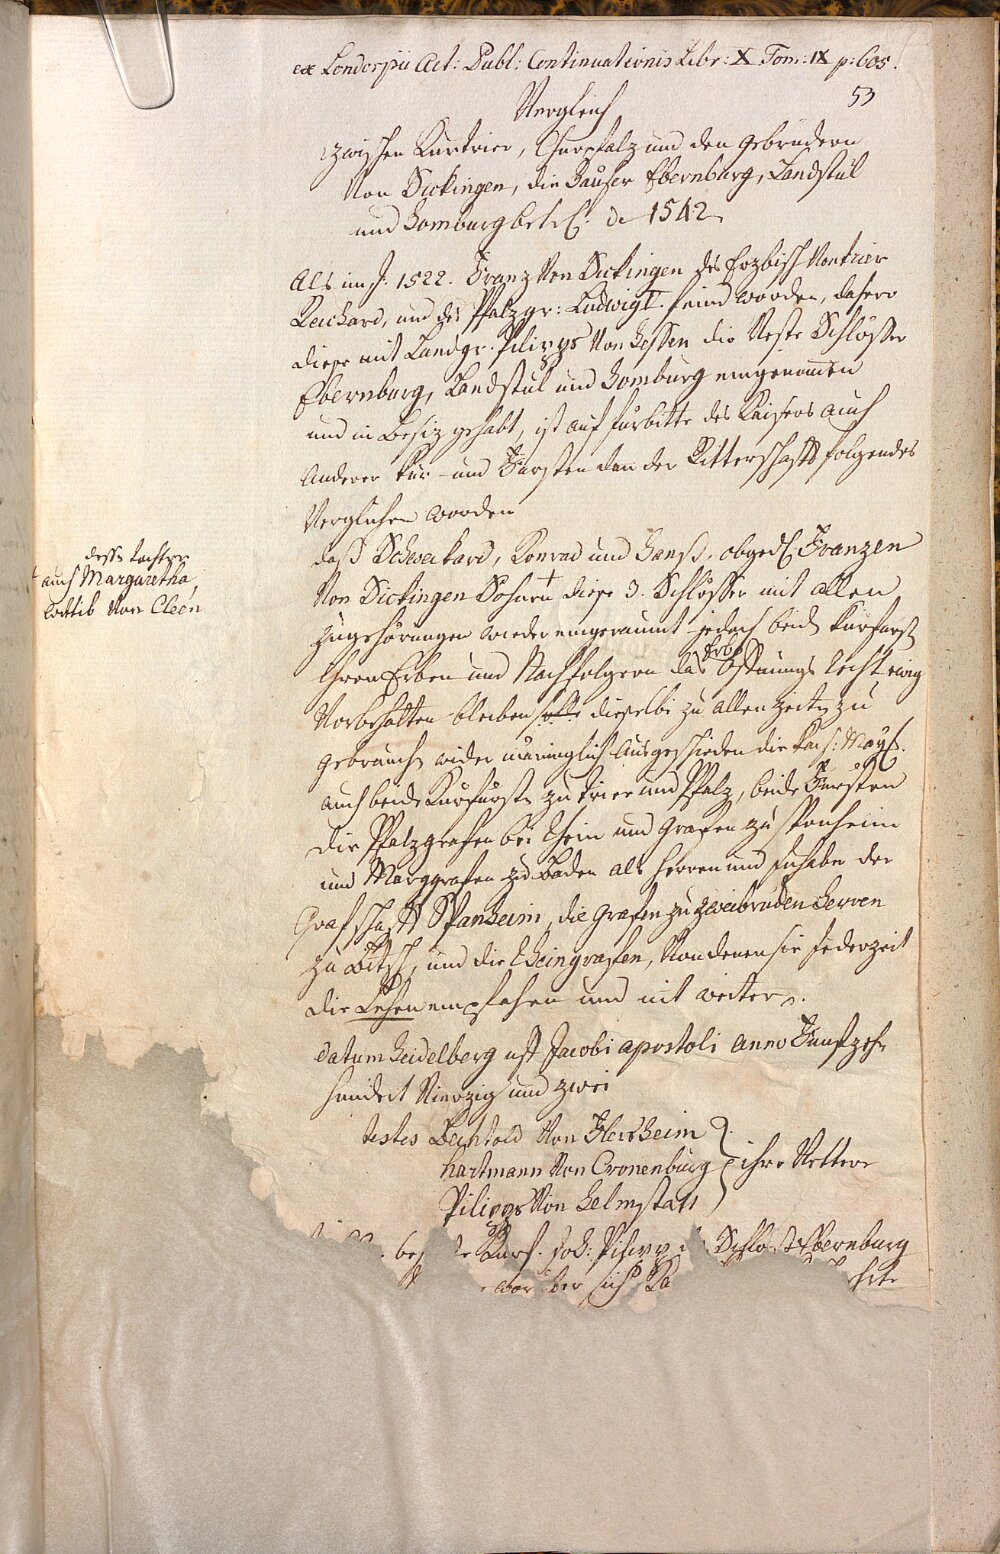 ex Londorpii Act: Publ: Continuationis Libr: X Tom: IX p: 605.
53
Vergleich
zwischen Kurtrier, Churpfalz und den Gebrüdern
von Sickingen, die Häuser Ebernburg, Landstul
und Homburg betrl. de 1542
Als im J. 1522. Franz von Sickingen des Erzbisch von Trier
Reichard, und des Pfalzgr: Ludwigs feind worden, dahero
diese mit Landgr. Pilipps von Hessen die Veste Schlösser
Ebernburg, Landstul und Homburg eingenomen
und in Besiz gehabt, ist auf fürbitte des Kaisers auch
Anderer Kur- und Fürsten dan der Ritterschafft folgendes
Verglichen worden
daß Schweickard, Konrad und Hanß, obged. Franzen
von Sickingen Söhnen + diese 3. Schlösser mit allen
zugehörungen wieder eingeraumt jedoch beide Kurfürst
Ihren Erben und Nachfolgern das Erb Öffnungs Recht ewig
Vorbehalten bleiben solle dieselbe zu allen zeiten zu
gebrauch wider mäniglich Ausgeschieden die Kais: Mayst.
auch beide Kurfürste zu Trier und Pfalz, beide Fürsten
die Pfalzgrafen bei Rhein und Grafen zu Sponheim
und Marggrafen zu Baden als Herren und Inhaber der
Grafschafft Spanheim, die Grafen zu Zweibrucken Herren
zu Bitsch, und die Rheingrafen, von denen sie Jederzeit
die Lehen empfahen und nit weiter.
datum Heidelberg uff Jacobi apostoli Anno Funfzehn
hundert Vierzig und zwei
testes Bechtold von Flersheim
Hartmann von Cronenburg } ihre Vettere
Pilipps von Helmstatt
Kurf. Pilipp Schlo Ebernburg
worüber sich
dessen Tochter
+ auch Margaretha,
Wittib von Cleen